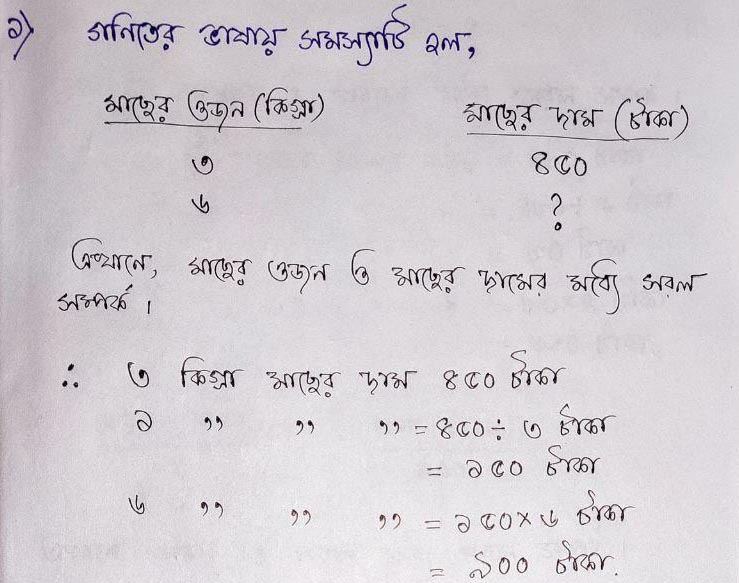 ১) গনিতের ভাষায় সমস্যাটি হল,
মাছের ওজন (কিগ্রা) মাছের দাম (টাকা)
৩ ৪৫০
৬ ?
এখানে, মাছের ওজন ও মাছের দামের মধ্যে সরল
সম্পর্ক।
∴ ৩ কিগ্রা মাছের দাম ৪৫০ টাকা
১ ,, ,, ,, = ৪৫০ ÷ ৩ টাকা
= ১৫০ টাকা
৬ ,, ,, ,, = ১৫০ × ৬ টাকা
= ৯০০ টাকা.